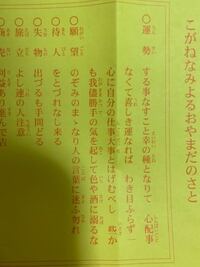 こがねなみよるおやまだのさと
○運勢 する事なすこと幸の種となりて 心配事
なくて喜しき運なれば わき目ふらず一
心に自分の仕事大事とはげむべし 些か
も我儘勝手の気を起して色や酒に溺るな
○願望 のぞみのまゝなり人の言葉に迷ふ勿れ
○待人 をとづれなし来る
○失物 出づるも手間どる
○旅立 よし連の人注意
○商売 利益あり進んで吉